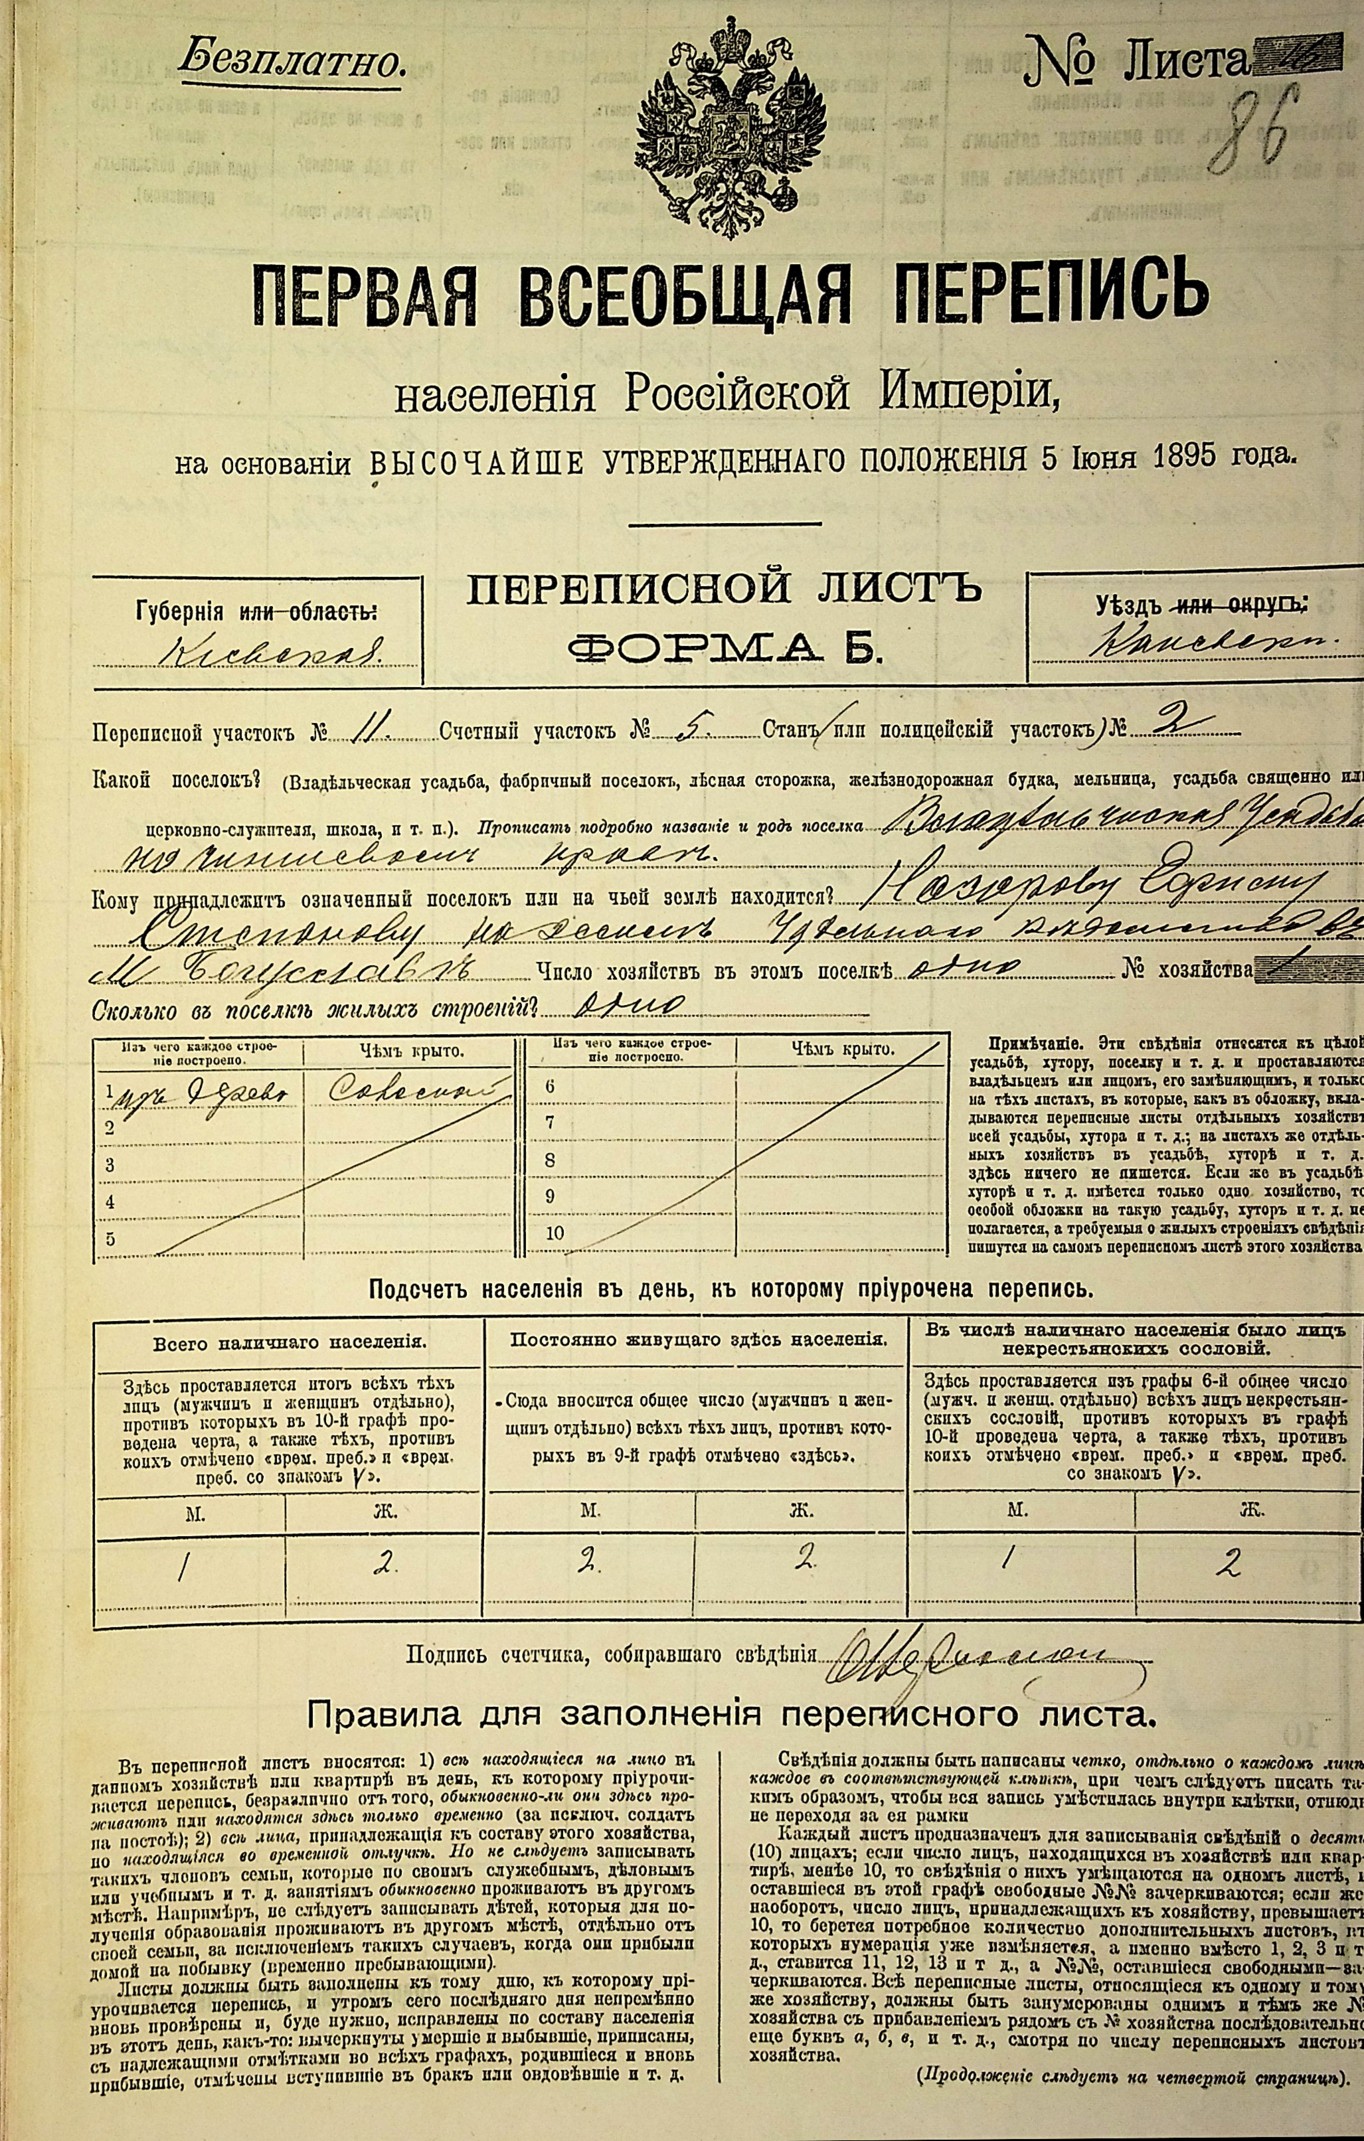 Безплатно.
№ Листа
86
ПЕРВАЯ ВСЕОБЩАЯ ПЕРЕПИСЬ
населенія Россійской Имперіи,
на основаніи ВЫСОЧАЙШЕ УТВЕРЖДЕННАГО ПОЛОЖЕНІЯ 5 Іюня 1895 года.
ПЕРЕПИСНОЙ ЛИСТЪ
ФОРМА Б.
Губернія или область:
Кіевская.
Уѣздъ или округъ:
Каневскі.
Переписной участокъ № 11. Счетный участокъ № 5. Станъ (или полицейскій участокъ) № 2
Какой поселокъ? (Владѣльческая усадьба, фабричный поселокъ, лѣсная сторожка, желѣзнодорожная будка, мельница, усадьба священно или
церковно-служителя, школа, и т. п.). Прописать подробно названіе и родъ поселка Владѣльческая Усадьба
на чиншевомъ правѣ.
Кому принадлежитъ означенный поселокъ или на чьей землѣ находится? Назарову Ефиму
Степанову на землѣ Удѣльнаго вѣдомства въ
М Богуславѣ Число хозяйствъ въ этомъ поселкѣ одно № хозяйства 1
Сколько въ поселкѣ жилыхъ строеній? одно
Изъ чего каждое строе-
ніе построено.
Чѣмъ крыто.
Изъ чего каждое строе-
ніе построено.
Чѣмъ крыто.
1 изъ дерева Соломой
2
3
4
5
6
7
8
9
10
Примѣчаніе. Эти свѣдѣнія относятся къ цѣлой
усадьбѣ, хутору, поселку и т. д. и проставляются
владѣльцемъ или лицомъ, его замѣняющимъ, и только
на тѣхъ листахъ, въ которые, какъ въ обложку, вкла-
дываются переписные листы отдѣльныхъ хозяйствъ
всей усадьбы, хутора и т. д.; на листахъ же отдѣль-
ныхъ хозяйствъ въ усадьбѣ, хуторѣ и т. д.
здѣсь ничего не пишется. Если же въ усадьбѣ
хуторѣ и т. д. имѣется только одно хозяйство, то
особой обложки на такую усадьбу, хуторъ и т. д. не
полагается, а требуемыя о жилыхъ строеніяхъ свѣдѣнія
пишутся на самомъ переписномъ листѣ этого хозяйства
Подсчетъ населенія въ день, къ которому пріурочена перепись.
Всего наличнаго населенія.
Здѣсь проставляется итогъ всѣхъ тѣхъ
лицъ (мужчинъ и женщинъ отдѣльно),
противъ которыхъ въ 10-й графѣ про-
ведена черта, а также тѣхъ, противъ
коихъ отмѣчено «врем. преб.» и «врем.
преб. со знакомъ V».
М. Ж.
1 2.
Постоянно живущаго здѣсь населенія.
Сюда вносится общее число (мужчинъ и жен-
щинъ отдѣльно) всѣхъ тѣхъ лицъ, противъ кото-
рыхъ въ 9-й графѣ отмѣчено «здѣсь».
М. Ж.
2. 2.
Въ числѣ наличнаго населенія было лицъ
некрестьянскихъ сословій.
Здѣсь проставляется изъ графы 6-й общее число
(мужч. и женщ. отдѣльно) всѣхъ лицъ некрестьян-
скихъ сословій, противъ которыхъ въ графѣ
10-й проведена черта, а также тѣхъ, противъ
коихъ отмѣчено «врем. преб.» и «врем. преб.
со знакомъ V».
М. Ж.
1 2
Подпись счетчика, собиравшаго свѣдѣнія
Правила для заполненія переписного листа.
Въ переписной листъ вносятся: 1) всѣ находящіеся на лицо въ
данномъ хозяйствѣ или квартирѣ въ день, къ которому пріурочи-
вается перепись, безразлично отъ того, обыкновенно-ли они здѣсь про-
живаютъ или находятся здѣсь только временно (за исключ. солдатъ
на постоѣ); 2) всѣ лица, принадлежащія къ составу этого хозяйства,
но находящіяся во временной отлучкѣ. Но не слѣдуетъ записывать
такихъ членовъ семьи, которые по своимъ служебнымъ, дѣловымъ
или учебнымъ и т. д. занятіямъ обыкновенно проживаютъ въ другомъ
мѣстѣ. Напримѣръ, не слѣдуетъ записывать дѣтей, которыя для по-
лученія образованія проживаютъ въ другомъ мѣстѣ, отдѣльно отъ
своей семьи, за исключеніемъ такихъ случаевъ, когда они прибыли
домой на побывку (временно пребывающими).
Листы должны быть заполнены къ тому дню, къ которому прі-
урочивается перепись, и утромъ сего послѣдняго дня непремѣнно
вновь провѣрены и, буде нужно, исправлены по составу населенія
въ этотъ день, какъ-то: вычеркнуты умершіе и выбывшіе, приписаны,
съ надлежащими отмѣтками во всѣхъ графахъ, родившіеся и вновь
прибывшіе, отмѣчены вступившіе въ бракъ или овдовѣвшіе и т. д.
Свѣдѣнія должны быть написаны четко, отдѣльно о каждомъ лицѣ
каждое въ соотвѣтствующей клѣткѣ, при чемъ слѣдуетъ писать та-
кимъ образомъ, чтобы вся запись умѣстилась внутри клѣтки, отнюдь
не переходя за ея рамки
Каждый листъ предназначенъ для записыванія свѣдѣній о десяти
(10) лицахъ; если число лицъ, находящихся въ хозяйствѣ или квар-
тирѣ, менѣе 10, то свѣдѣнія о нихъ умѣщаются на одномъ листѣ, и
оставшіеся въ этой графѣ свободные №№ зачеркиваются; если же
наоборотъ, число лицъ, принадлежащихъ къ хозяйству, превышаетъ
10, то берется потребное количество дополнительныхъ листовъ, въ
которыхъ нумерація уже измѣняется, а именно вмѣсто 1, 2, 3 и т
д., ставится 11, 12, 13 и т д., а №№, оставшіеся свободными—за-
черкиваются. Всѣ переписные листы, относящіеся къ одному и тому
же хозяйству, должны быть занумерованы однимъ и тѣмъ же №
хозяйства съ прибавленіемъ рядомъ съ № хозяйства послѣдовательно
еще буквъ а, б, в, и т. д., смотря по числу переписныхъ листовъ
хозяйства.
(Продолженіе слѣдуетъ на четвертой страницѣ).